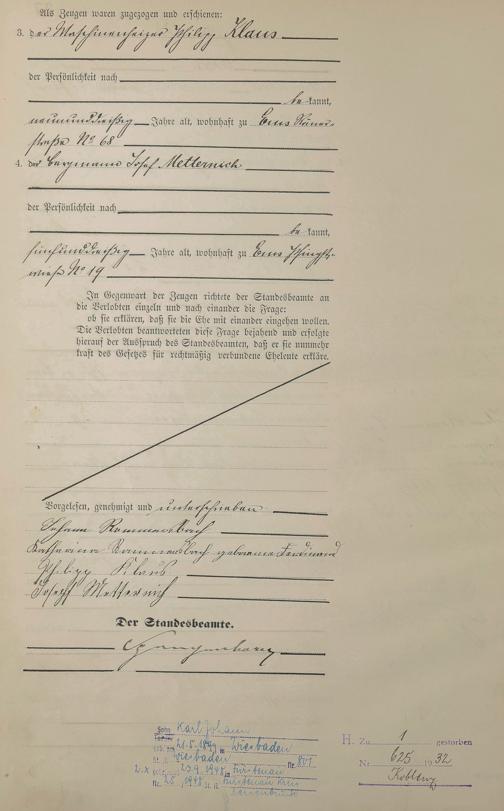 Als Zeugen waren zugezogen und erschienen:
3. der Maschinenheizer Philipp Klaus
der Persönlichkeit nach
be kannt,
neununddreißig Jahre alt, wohnhaft zu Ems
straße No 68
4. der Bergmann Josef Metternich
der Persönlichkeit nach
be kannt,
fünfunddreißig Jahre alt, wohnhaft zu Ems
No 19
In Gegenwart der Zeugen richtete der Standesbeamte an
die Verlobten einzeln und nach einander die Frage:
ob sie erklären, daß sie die Ehe mit einander eingehen wollen.
Die Verlobten beantworteten diese Frage bejahend und erfolgte
hierauf der Ausspruch des Standesbeamten, daß er sie nunmehr
kraft des Gesetzes für rechtmäßig verbundene Eheleute erkläre.
Vorgelesen, genehmigt und unterschrieben
Johann Rommersbach
Katharina Rommersbach geborene Ferdinand
Philipp Klaus
Joseph Metternich
Der Standesbeamte.
Sohn Karl Johann
21.5. in Wiesbaden
Wiesbaden Nr. 801
2. 1948 in
Nr. 1948
H. Zu 1 gestorben
Nr 625 1932
Koblenz